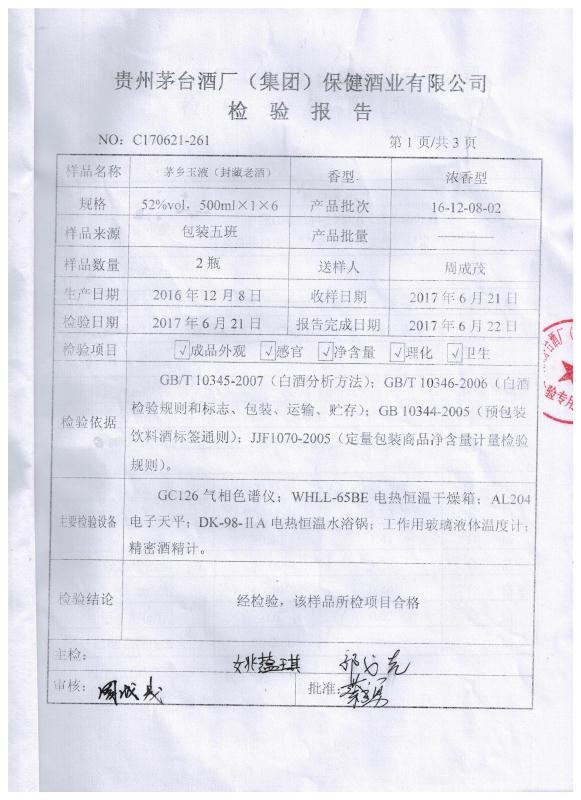 贵州茅台酒厂（集团）保健酒业有限公司
检 验 报 告
NO：C170621-261 第 1 页/共 3 页
样品名称 茅乡玉液（封藏老酒） 香型 浓香型
规格 52%vol，500ml×1×6 产品批次 16-12-08-02
样品来源 包装五班 产品批量 ————
样品数量 2 瓶 送样人 周成茂
生产日期 2016 年 12 月 8 日 收样日期 2017 年 6 月 21 日
检验日期 2017 年 6 月 21 日 报告完成日期 2017 年 6 月 22 日
检验项目 √成品外观 √感官 √净含量 √理化 √卫生
GB/T 10345-2007（白酒分析方法）；GB/T 10346-2006（白酒
检验规则和标志、包装、运输、贮存）；GB 10344-2005（预包装
检验依据
饮料酒标签通则）；JJF1070-2005（定量包装商品净含量计量检验
规则）。
GC126 气相色谱仪；WHLL-65BE 电热恒温干燥箱；AL204
主要检验设备 电子天平；DK-98-ⅡA 电热恒温水浴锅；工作用玻璃液体温度计；
精密酒精计。
检验结论 经检验，该样品所检项目合格
主检： 姚蕴琪
审核：周成茂 批准：
台酒厂（
验专用